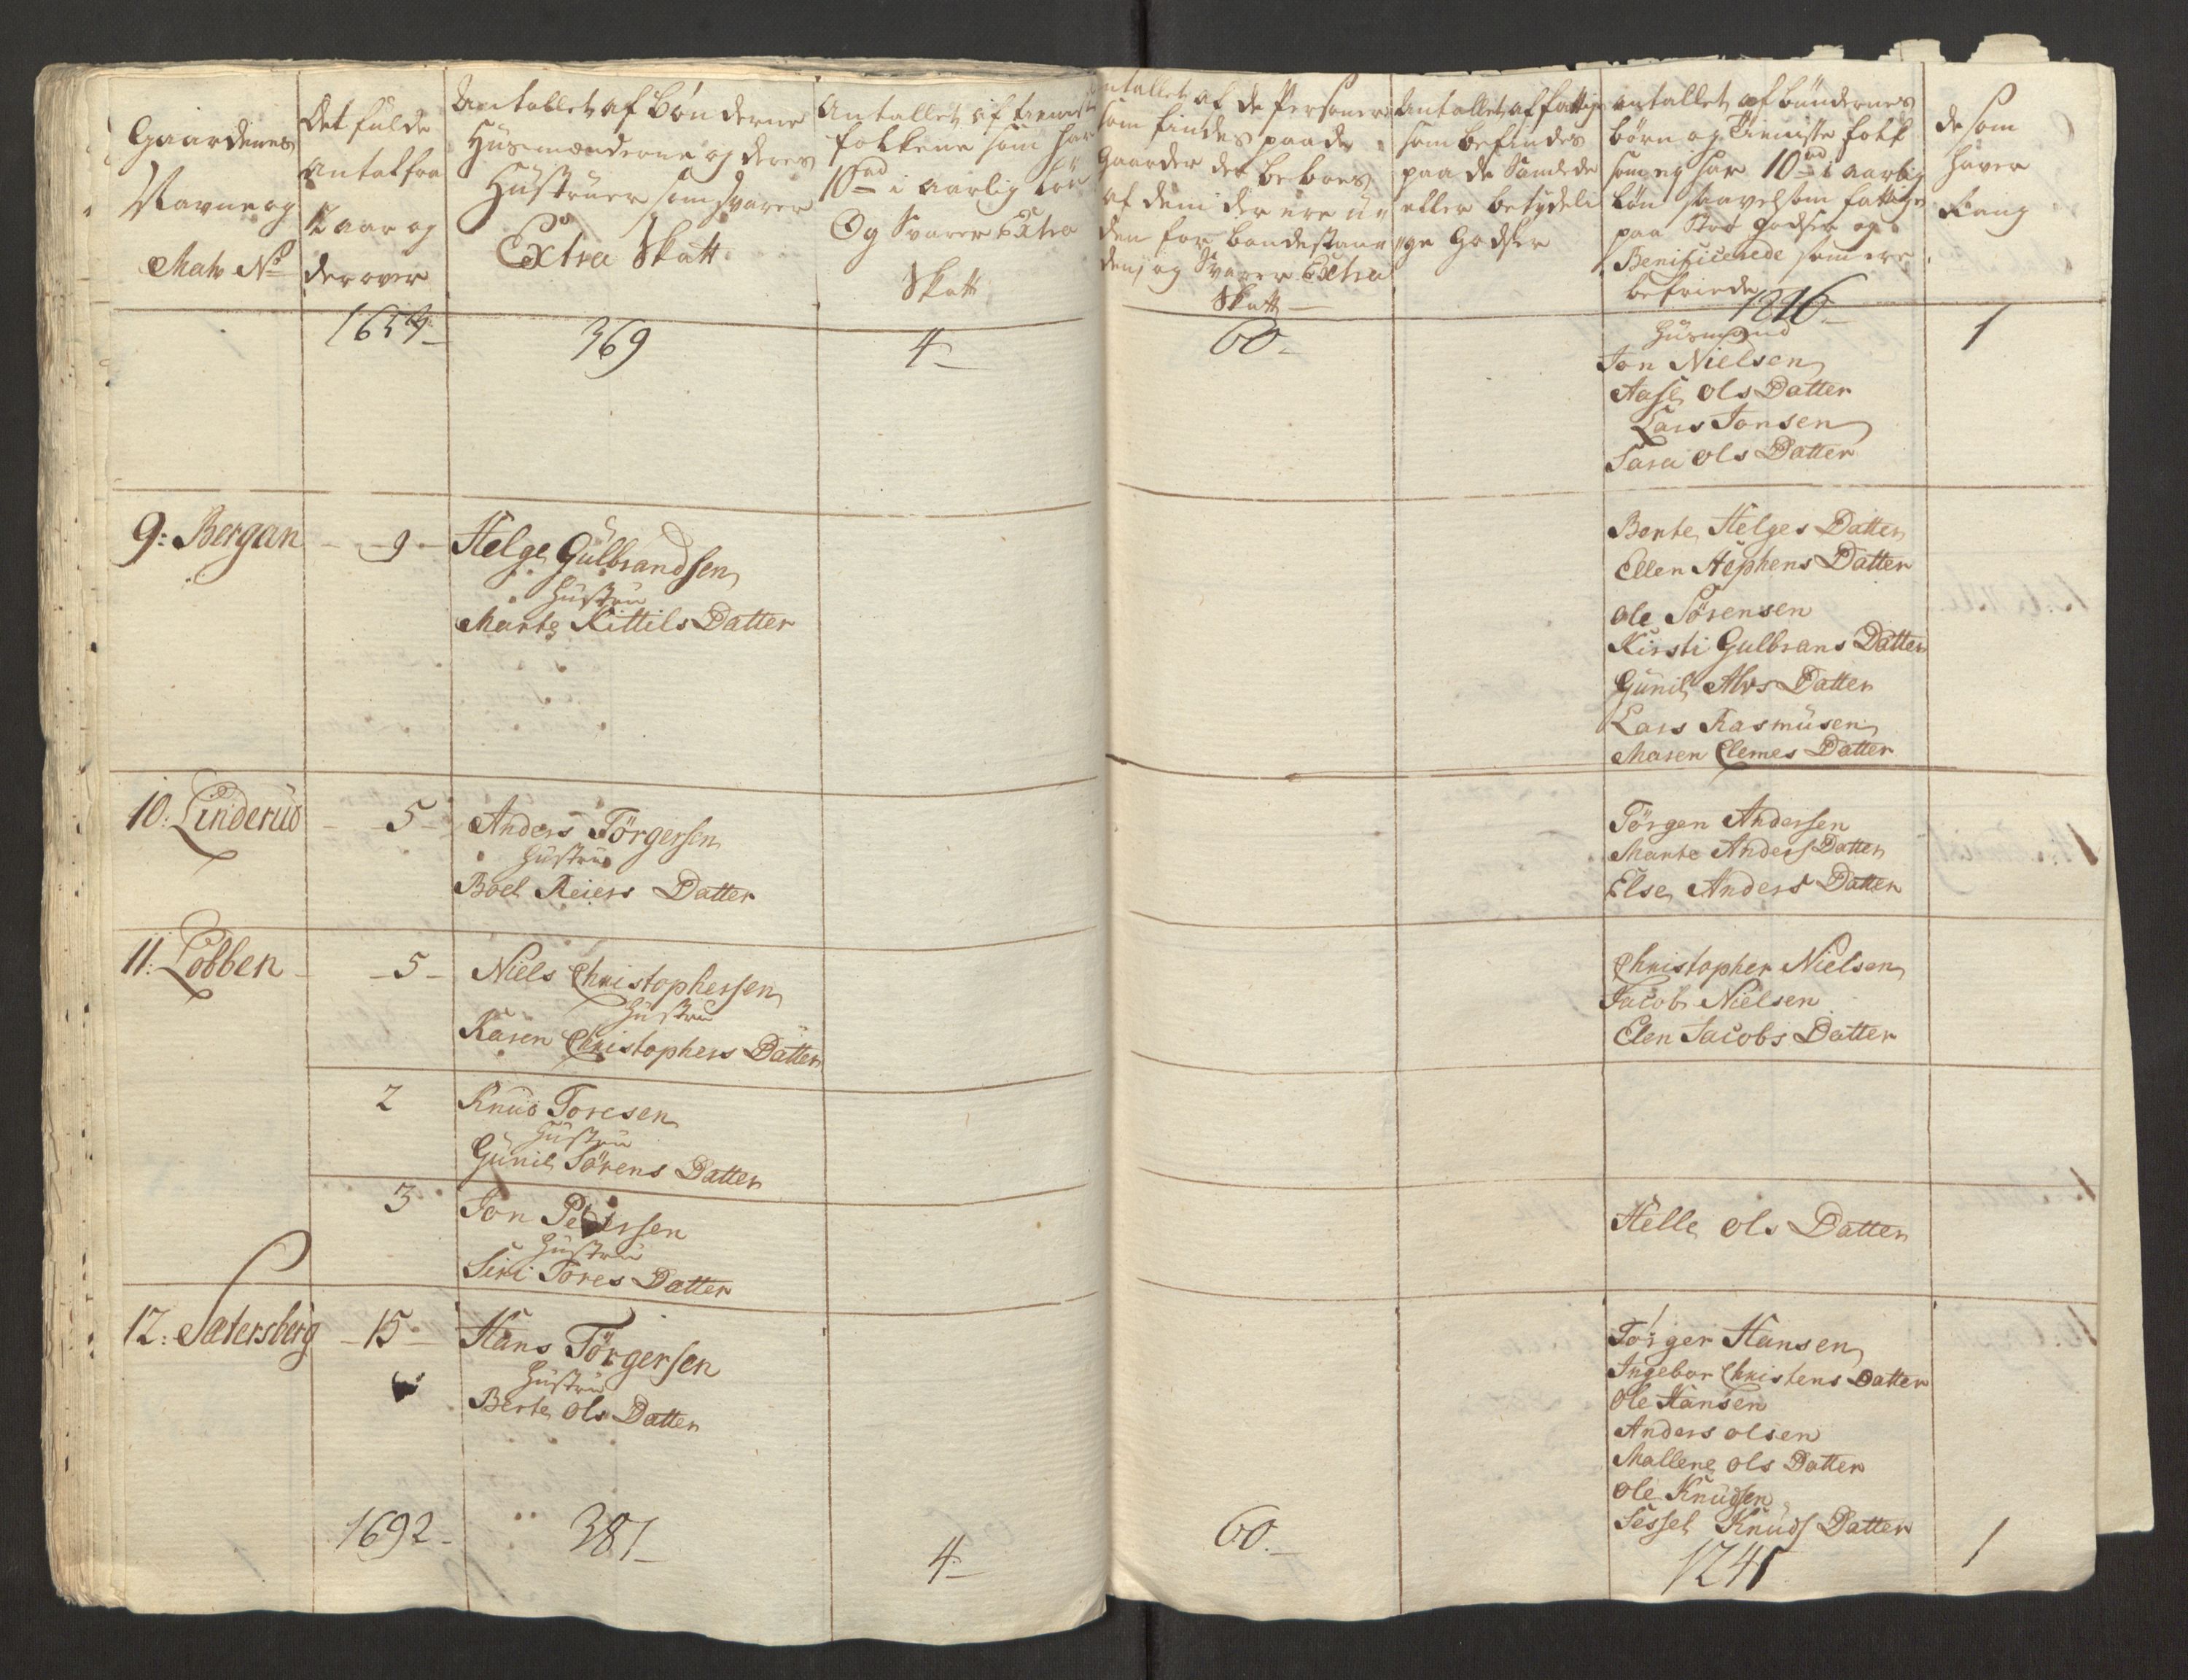 Gaardenes
Navne og
Matr No
Det fulde
Antal fra
12 aar og
derover
Antallet af bønderne
Husmænderne og deres
Hustruer som svarer
Extra Skatt
Antallet af tieniste
folkene som har
10rd i aarlig løn
Og Svarer Extra
Skatt
Antallet af de Personer
som findes paa de
Gaarder der beboes
af dem der ere u-
den for bondestan-
den, og Svarer Extra
Skatt
Antallet af fattige
som befindes
paa de Samlede
eller betydeli-
ge Godser
Antallet af bøndernes
børn og Tieniste folk
som ey har 10rd i aarlig
løn saavelsom fattige
paa Stor Godser og
Benificerede som ere
befriede
de som
haver
Rang
369
4
60
1216
1
Husmænd
Jon Nielsen
Aase Ols Datter
Lars Jonsen
Sara Ols Datter
9: Bergan
9
Helge Gulbrandsen
Hustru
Marte Kittils Datter
Berte Helges Datter
Ellen Stephens Datter
Ole Sørensen
Kirsti Gulbrans Datter
Gunil Alvs Datter
Lars Rasmusen
Maren Clemes Datter
10: Linderud
5
Anders Törgersen
Hustru
Boel Reiers Datter
Törgen Andersen
Marte Anders Datter
Else Anders Datter
11: Lobben
5
Niels Christophersen
Hustru
Karen Christophers Datter
Christopher Nielsen
Jacob Nielsen
Elen Jacobs Datter
2
Knud Toresen
Hustru
Gunil Sörens Datter
3
Jon Petersen
Hustru
Siri Tores Datter
Helle Ols Datter
12: Sætersberg
15
Hans Törgersen
Hustru
Berte Ols Datter
Törger Hansen
Ingebor Christens Datter
Ole Hansen
Anders olsen
Mallene Ols Datter
Ole Knudsen
Sessel Knuds Datter
1692
381
4
60
1241
1